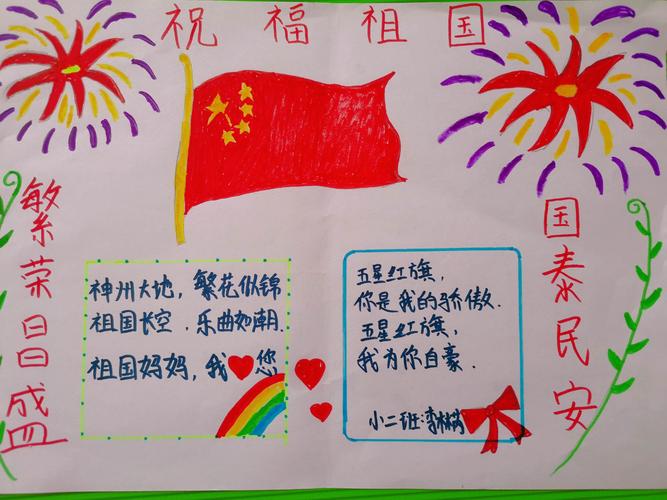 祝福祖国
繁荣昌盛
神州大地，繁花似锦
祖国长空，乐曲如潮.
祖国妈妈，我❤您
五星红旗，
你是我的骄傲.
五星红旗，
我为你自豪.
小二班:李
国泰民安